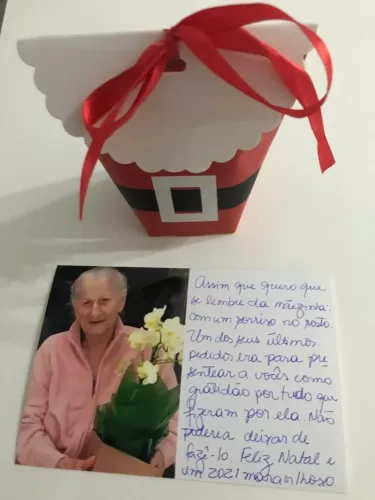 Assim que quero que
se lembre da mãezinha:
com um sorriso no rosto.
Um dos seus últimos
pedidos era para pre
sentear a vocês como
gratidão por tudo que
fizeram por ela. Não
poderia deixar de
fazê-lo. Feliz Natal e
um 2021 maravilhoso